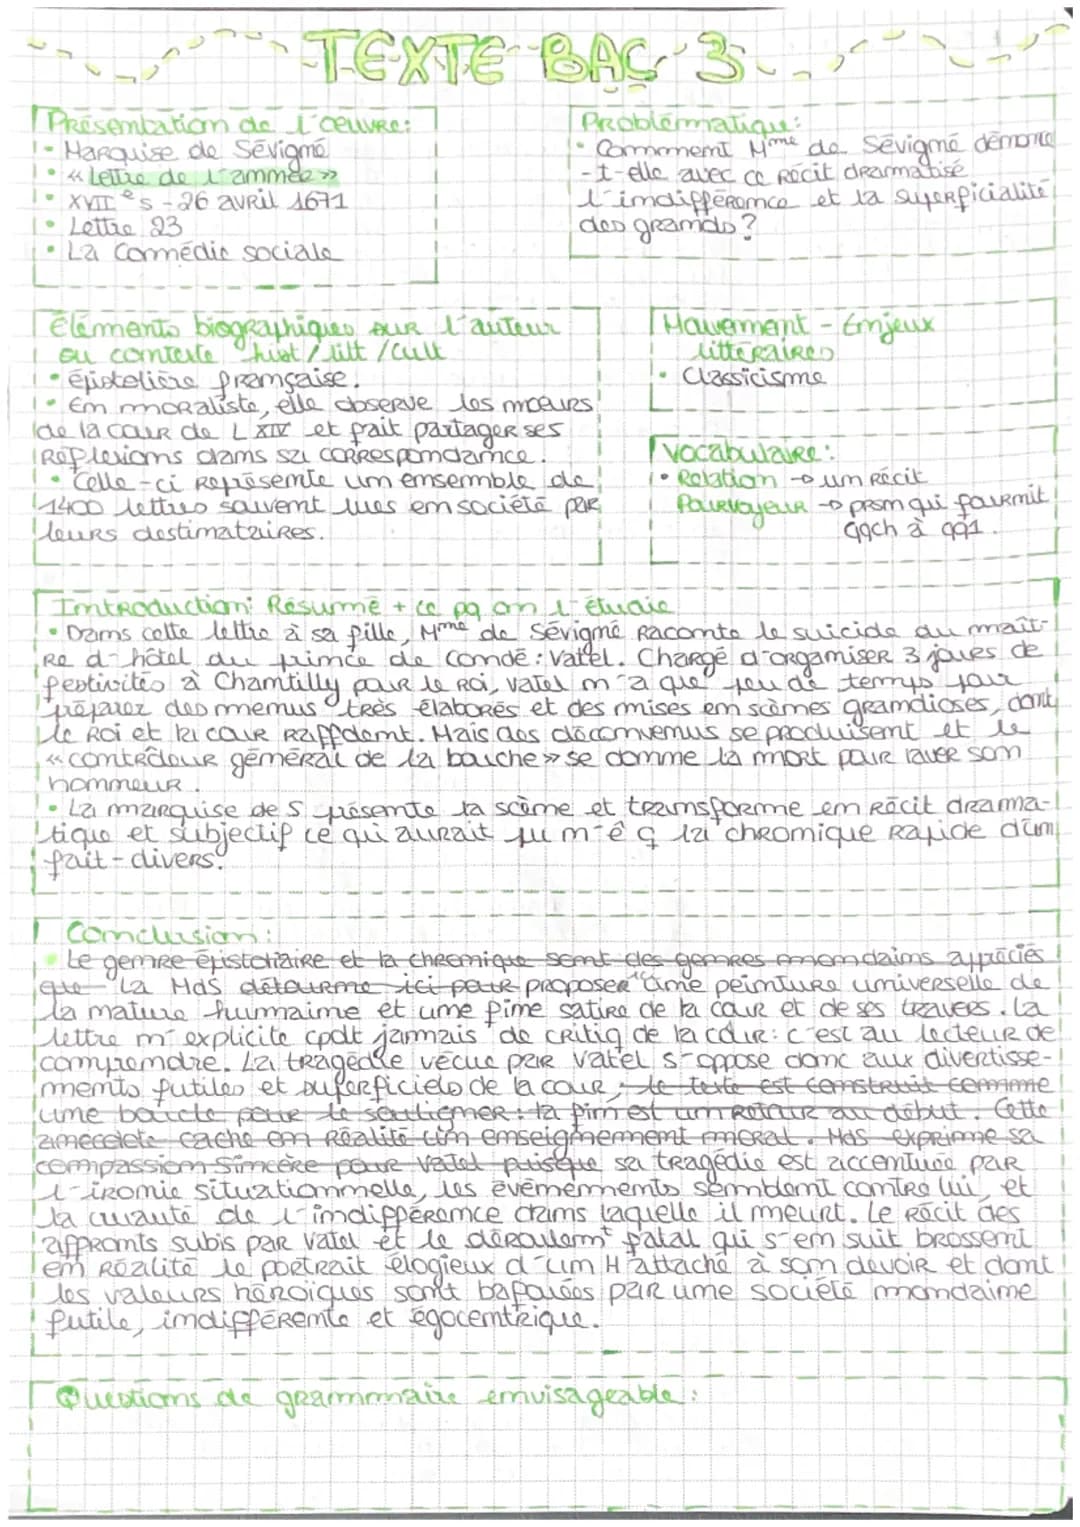 TEXTE BAC 3
Présentation de l'œuvre:
• Marquise de Sévigné
• « Lettre de l'année »
• XVII e s - 26 avril 1671
• Lettre 23
• La Comédie sociale
Problématique:
• Comment Mme de Sévigné démontre
-t-elle avec ce récit dramatisé
l'indifférence et la superficialité
des grands?
Eléments biographiques sur l'auteur
ou contexte hist / litt / cult
• épistolière française.
• En moraliste, elle observe les mœurs
de la cour de L XIV et fait partager ses
réflexions dans sa correspondance.
• Celle-ci représente un ensemble de
1400 lettres souvent lues en société par
leurs destinataires.
Mouvement - Enjeux
littéraires
• Classicisme
Vocabulaire:
• Relation → un récit
Pourvoyeur → prsn qui fournit
qqch à qq1.
Introduction: Résumé + ce pq on l'étudie
• Dans cette lettre à sa fille, Mme de Sévigné raconte le suicide du maît-
re d'hôtel du prince de Condé: Vatel. Chargé d'organiser 3 jours de
festivités à Chantilly pour le Roi, Vatel n'a que peu de temps pour
préparer des menus très élaborés et des mises en scènes grandioses, dont
le Roi et la cour raffolent. Mais des déconvenus se produisent et le
« contrôleur général de la bouche » se donne la mort pour laver son
honneur.
• La marquise de S présente la scène et transforme en récit drama-
tique et subjectif ce qui aurait pu n'ê q la chronique rapide d'un
fait-divers.
Conclusion:
• Le genre épistolaire et la chronique sont des genres mondains appréciés
que La MdS détourne ici pour proposer une peinture universelle de
la nature humaine et une fine satire de la cour et de ses travers. La
lettre n'explicite cpdt jamais de critiq de la cour: c'est au lecteur de
comprendre. La tragédie vécue par Vatel s'oppose donc aux divertisse-
ments futiles et superficiels de la cour; le texte est construit comme
une boucle pour le souligner: la fin est un retour au début. Cette
anecdote cache en réalité un enseignement moral. MdS exprime sa
compassion sincère pour Vatel puisque sa tragédie est accentuée par
l'ironie situationnelle, les évènements semblent contre lui, et
la cruauté de l'indifférence dans laquelle il meurt. Le récit des
affronts subis par Vatel et le déroulemt fatal qui s'en suit brossent
en réalité le portrait élogieux d'un H attaché à son devoir et dont
les valeurs héroïques sont bafouées par une société mondaine
futile, indifférente et égocentrique.
Questions de grammaire envisageable: